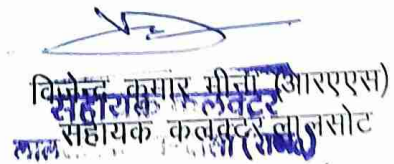 विजेन्द्र कुमार मीना (आरएएस)
सहायक कलक्टर
सहायक कलक्टर लालसोट
लाल